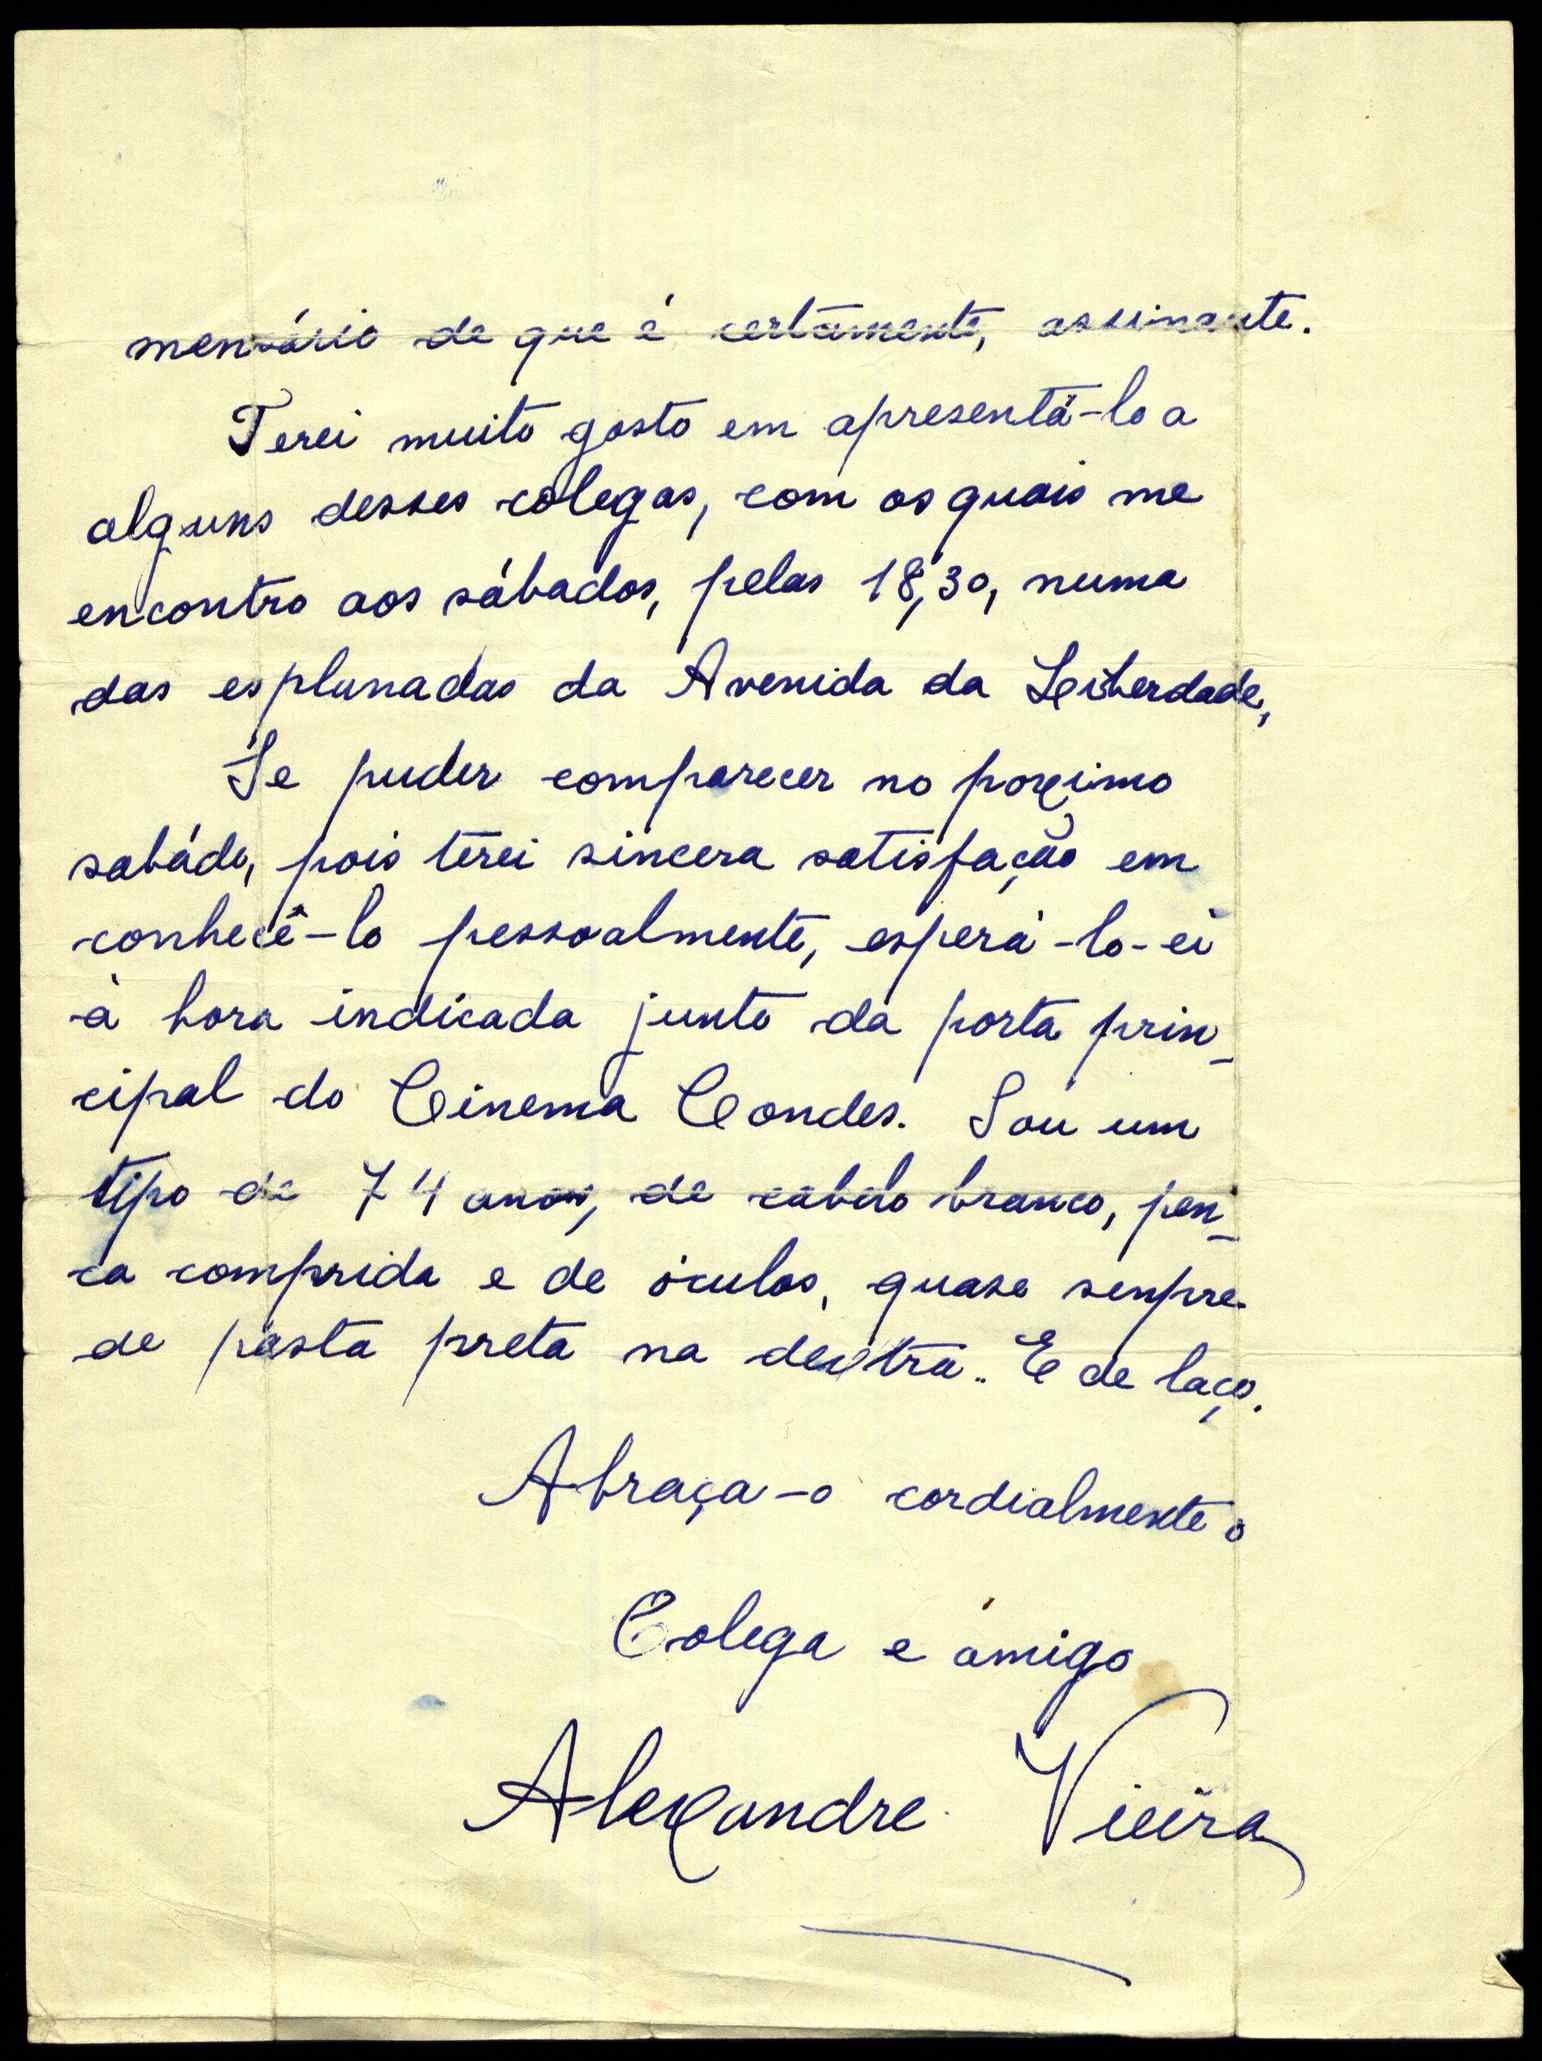 mensário de que é certamente, assinante.
Terei muito gosto em apresentá-lo a
alguns desses colegas, com os quais me
encontro aos sábados, pelas 18,30, numa
das esplanadas da Avenida da Liberdade,
Se puder comparecer no poximo
sabádo, pois terei sincera satisfação em
conhecê-lo pessoalmente, esperá-lo-ei
à hora indicada junto da porta prin-
cipal do Cinema Condes. Sou um
tipo de 74 anos, de cabelo branco, pen-
ca comprida e de óculos, quase senpre
de pasta preta na dextra.. E de laço.
Abraça-o cordialmente o
Colega e amigo
Alexandre Vieira